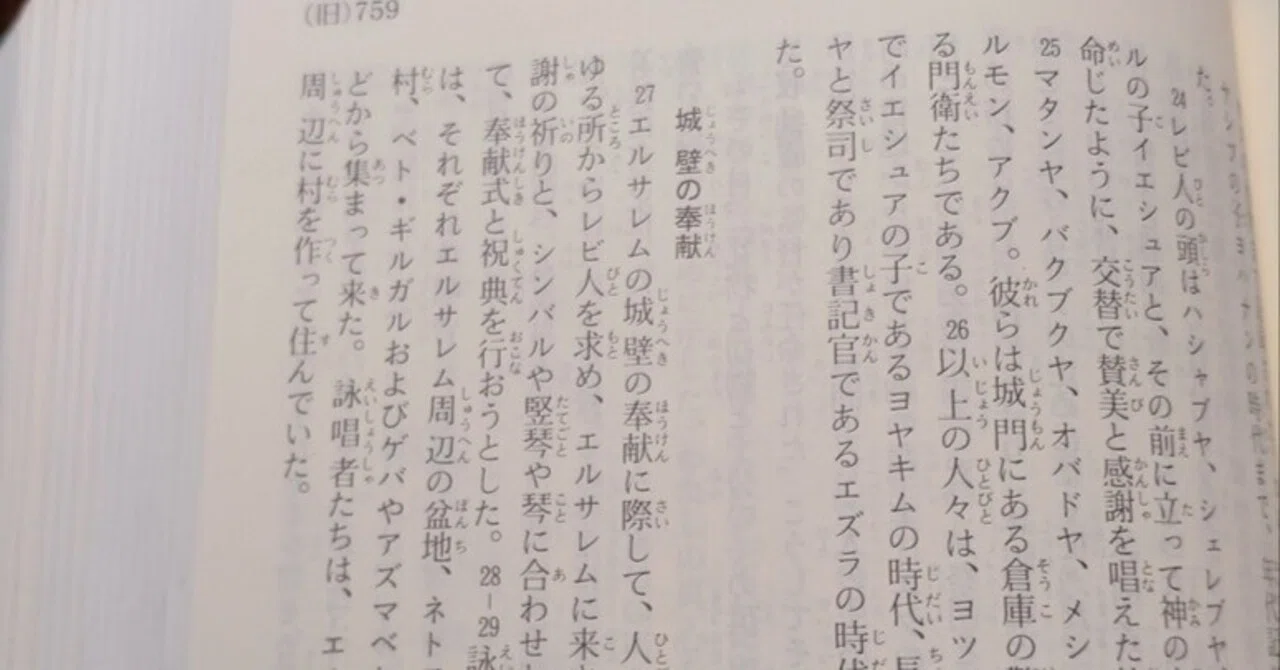 (旧)759
た。
24レビ人の頭はハシャブヤ、シェレブヤ
ルの子イエシュアと、その前に立って神の
命じたように、交替で賛美と感謝を唱えた
25マタンヤ、バクブクヤ、オバドヤ、メシ
ルモン、アクブ。彼らは城門にある倉庫の
る門衛たちである。26以上の人々は、ヨツ
でイエシュアの子であるヨヤキムの時代、
ヤと祭司であり書記官であるエズラの時代
た。
城壁の奉献
27エルサレムの城壁の奉献に際して、人
ゆる所からレビ人を求め、エルサレムに来
謝の祈りと、シンバルや竪琴や琴に合わせ
て、奉献式と祝典を行おうとした。28-29詠
は、それぞれエルサレム周辺の盆地、ネト
村、ベト・ギルガルおよびゲバやアズマベ
どから集まって来た。詠唱者たちは、エ
周辺に村を作って住んでいた。